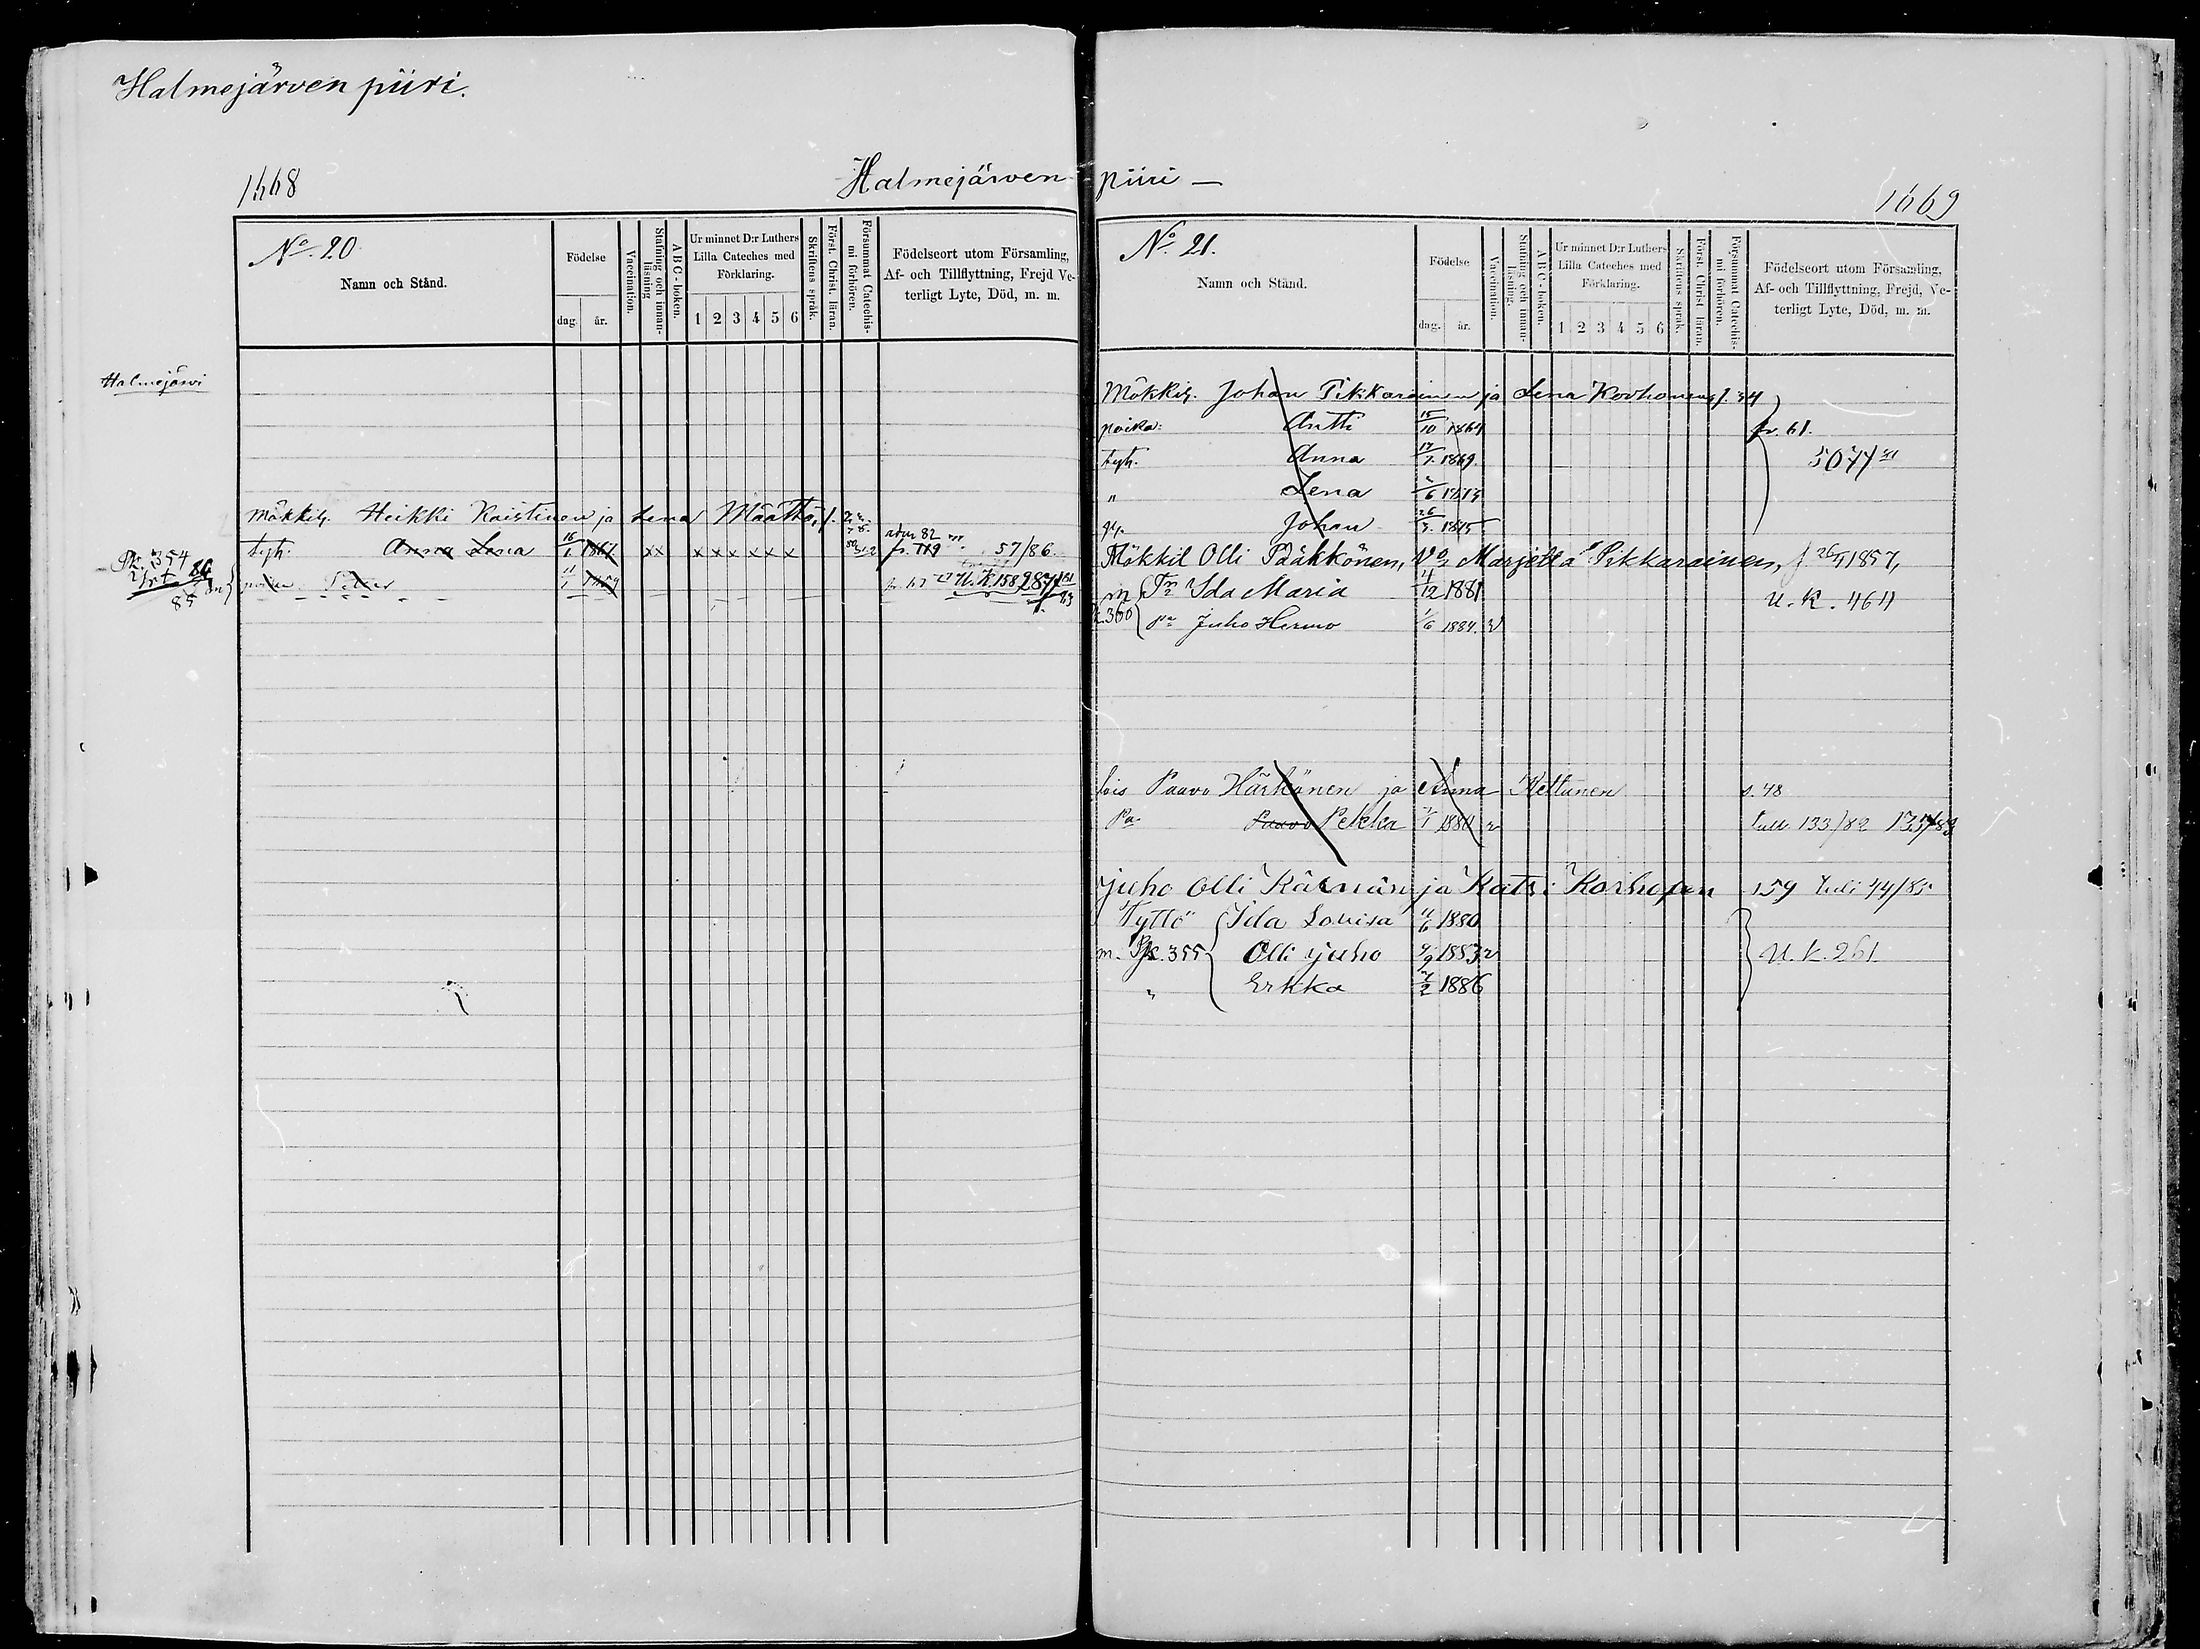 Halmejärven piiri.
1668
Halmejärven piiri —
1669
No. 20.
Namn och Stånd.
Födelse
dag.
år.
Vaccination.
Stafning och innan-läsning
A B C - boken.
Ur minnet D:r Luthers
Lilla Cateches med
Förklaring.
1 2 3 4 5 6
Skriftens språk.
Först. Christ. läran.
Försummat Catechis-mi förhören.
Födelseort utom Församling,
Af- och Tillflyttning, Frejd Ve-
terligt Lyte, Död, m. m.
Halmejärvi
Mökkil. Heikki Kaistinen ja Lena Määttä, f.
tyh. Anna Lena 16/1 1867 x x x x x x x x 57/86.
Pk. 354
85
poika Petter 11/1 1859 U.K. 158
No. 21.
Namn och Stånd.
Födelse
dag.
år.
Vaccination.
Stafning och innan-läsning.
A B C - boken.
Ur minnet D:r Luthers
Lilla Cateches med
Förklaring.
1 2 3 4 5 6
Skriftens språk.
Först. Christ. läran.
Försummat Catechis-mi förhören.
Födelseort utom Församling,
Af- och Tillflyttning, Frejd, Ve-
terligt Lyte, Död, m. m.
Mökkil. Johan Pikkarainen ja Lena Korhonen, f. 34
poika: Antti 15/10 1864 fr. 61.
tyh. Anna 1869.
" Lena
Johan 26/3. 1875
Mökkil Olli Pääkkönen, Vo Marjetta Pikkarainen, f 1857,
m Tr Ida Maria 4/12 1881 U. K. 464
k. 360 Pa Juho Hermo 1/6 1884. v
lois Paavo Härkönen ja Anna Kettunen s. 48
Pa. Paavo Pekka 1880 v Tull. 133/82 135/83
Juho Olli Kärnän ja Katri Korhosen 159 Tuli 44/85
Tyttö Ida Lovisa 11/6 1880
m. Pk. 355 Olli Juho 4/9 1883 v U. k. 261
" Erkka 7/2 1886